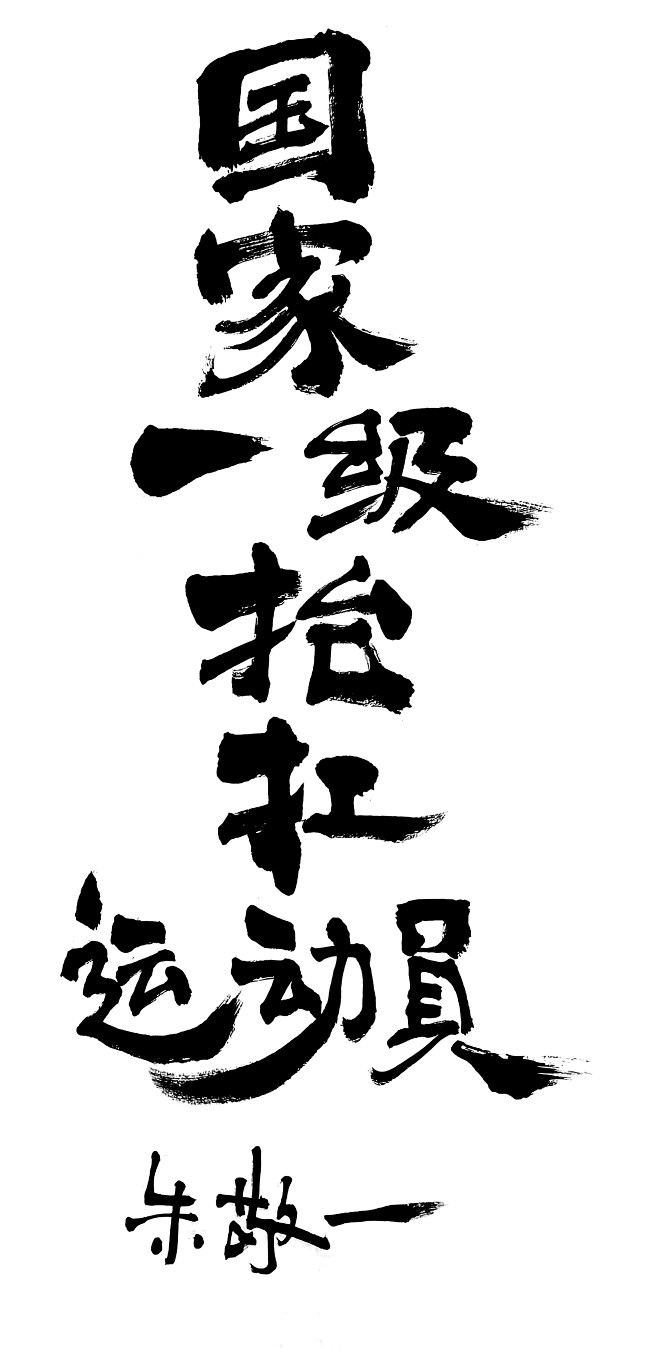 国
家
一级
抬
扛
运动員
朱敬一